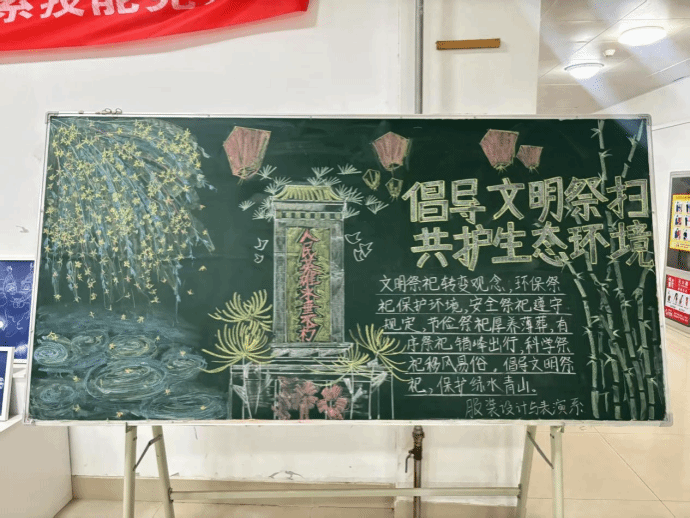 技能
倡导文明祭扫
共护生态环境
人民英雄永垂不朽
文明祭祀转变观念、环保祭
祀保护环境,安全祭祀遵守
规定、节俭祭祀厚养薄葬,有
序祭祀错峰出行,科学祭
祀移风易俗,倡导文明祭
祀,保护绿水青山。
服装设计与表演系